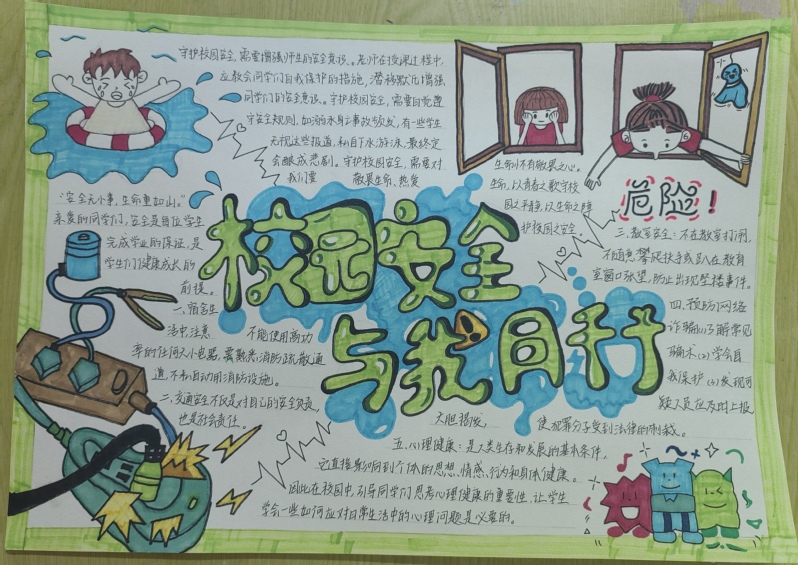 守护校园安全,需要增强师生的安全意识。老师在授课过程中,
应教会同学们自我保护的措施,潜移默化增强
同学们的安全意识。守护校园安全,需要自觉遵
守安全规则,如溺水身亡事故频发,有一些学生
无视这些报道,私自下水游泳,最终定
会酿成悲剧。守护校园安全,需要对
我们要 敬畏生命,热爱
生命,不有敬畏之心。
生命,以青春之歌守校
园之平静,以生命之障
护校园之安全。
危险!
校园安全
与我同行
“安全无小事,生命重如山。”
亲爱的同学们,安全是每位学生
完成学业的保证,是
学生们健康成长的
前提。
一、宿舍生
活中,注意 不能使用高功
率的任何大小电器,要熟悉消防疏散通
道,不私自动用消防设施。
二、交通安全不仅是对自己的安全负责,
也是社会责任。
三、教室安全:不在教室打闹,
不随意攀爬扶手或趴在教育
室窗口张望,防止出现坠楼事件。
四、预防网络
诈骗:(1)了解常见
骗术(2)学会自
我保护(3)发现可
疑人员应及时上报
大胆揭发, 使犯罪分子受到法律的制裁。
五、心理健康:是人类生存和发展的基本条件,
它直接影响到个体的思想、情感、行为和身体健康。
因此在校园中,引导同学们思考心理健康的重要性,让学生
学会一些如何应对日常生活中的心理问题是必要的。